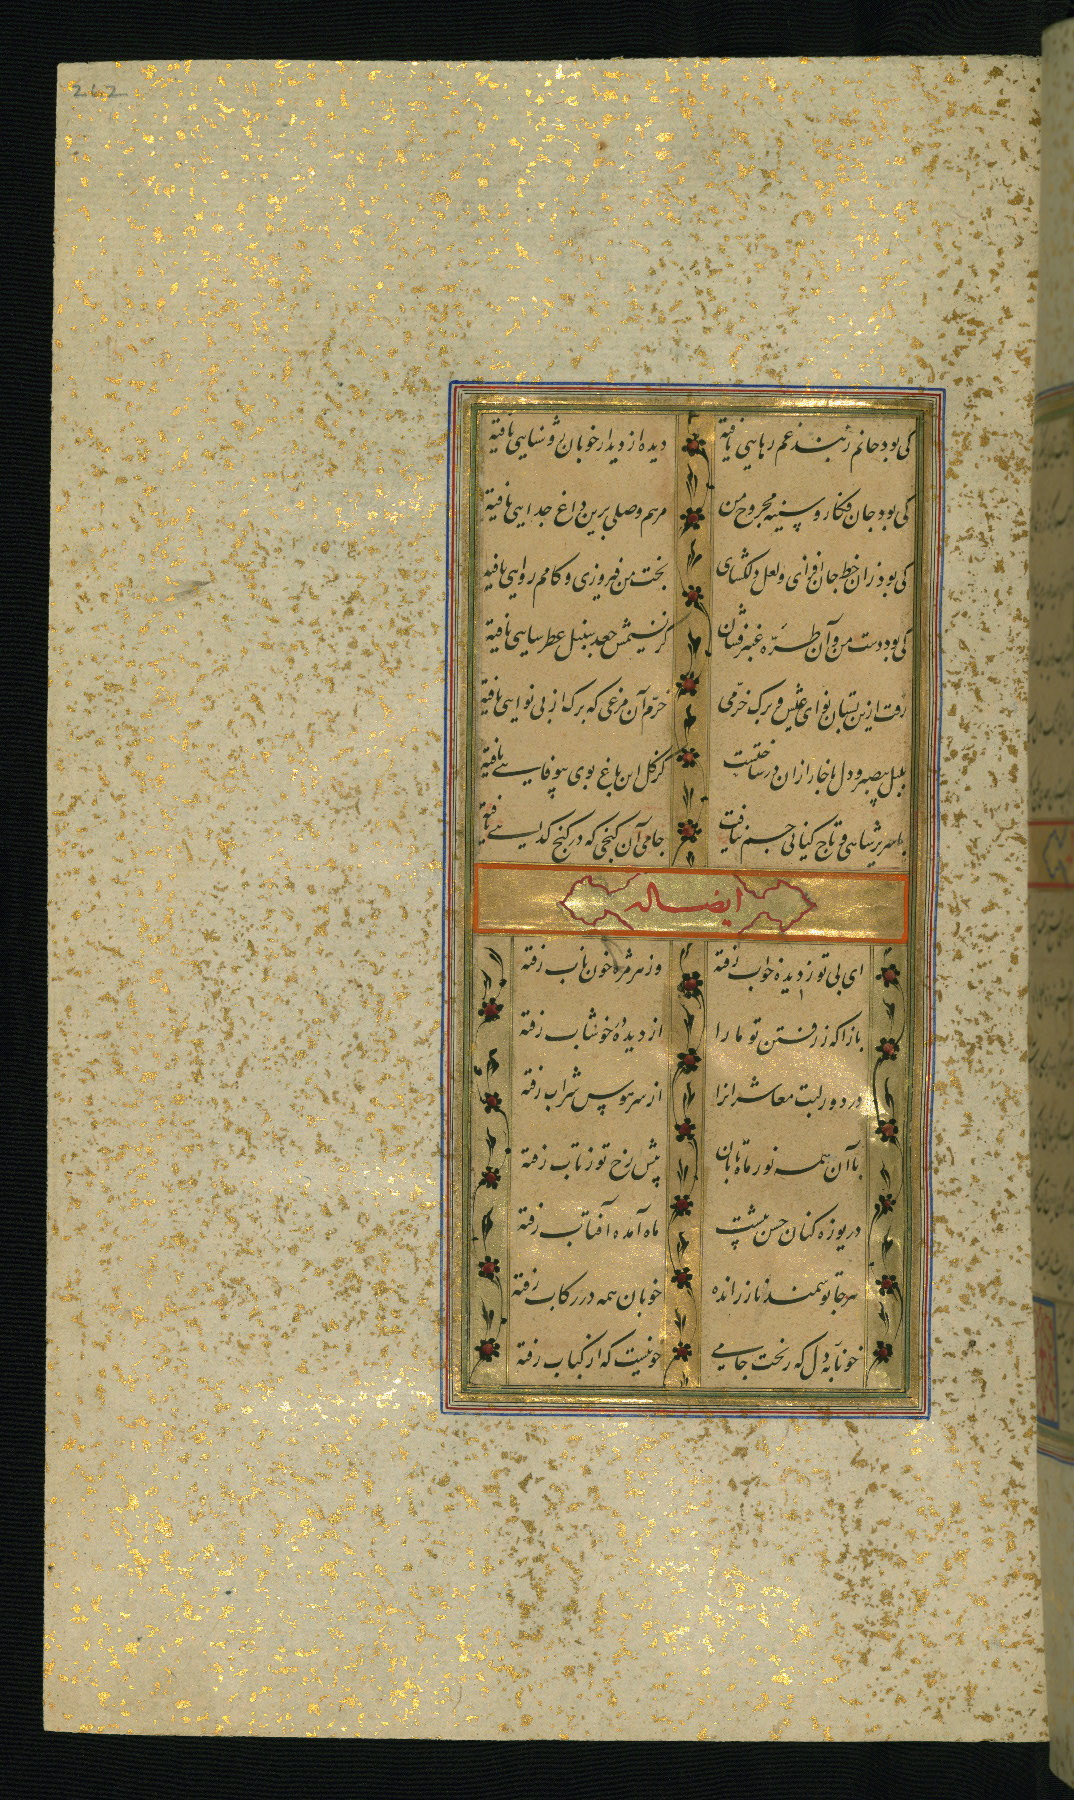 262
کی بود جانم ز بند غم رهایی یافته دیده از دیدار خوبان روشنایی یافته
کی بود جان فکار و سینه مجروح من مرهم وصلی برین داغ جدایی یافته
کی بود زان خط جان افزای و لعل دلگشای بخت من فیروزی و کامم روایی یافته
کی بود دست من و آن طره عنبرفشان کز نسیمش جعد سنبل عطرسایی یافته
رفت ازین بستان نوای عیش و برک خرمی خرم آن مرغی که برک از بی نوایی یافته
بلبل بیصبر و دل با خار ازان در ساختست کز کل این باغ بوی بیوفایی یافته
شاهی و تاج کیانی جم نیافت جامی آن کنجی که در کنج کدایی یافته
ایضا له
ای بی تو ز دیده خواب رفته وز هر مژه خون ناب رفته
بازا که ز رفتن تو ما را از دیدهٔ خوشاب رفته
در دور لبت معاشرانرا از سر هوس شراب رفته
با آن همه نور ماه تابان پیش رخ تو ز تاب رفته
دریوزه کنان حسن پیشت ماه آمده آفتاب رفته
هر جا تو سمند ناز رانده خوبان همه در رکاب رفته
خونابه دل که ریخت جامی خونیست که از کباب رفته